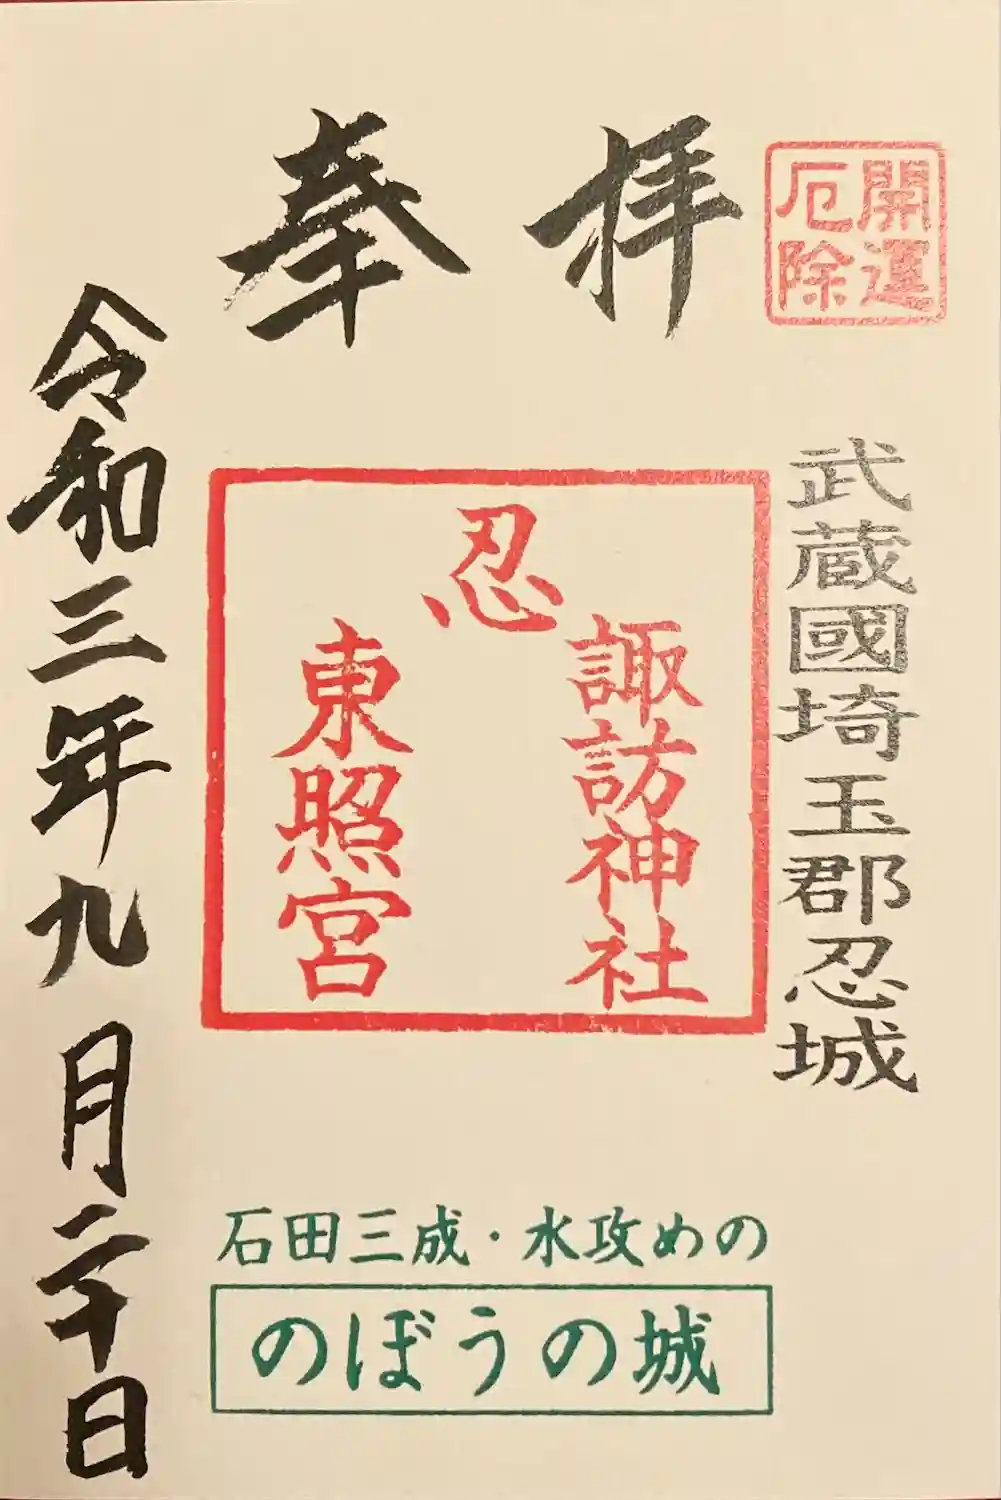 開運
厄除
奉拝
武蔵國埼玉郡忍城
忍
諏訪神社
東照宮
令和三年九月二十日
石田三成・水攻めの
のぼうの城